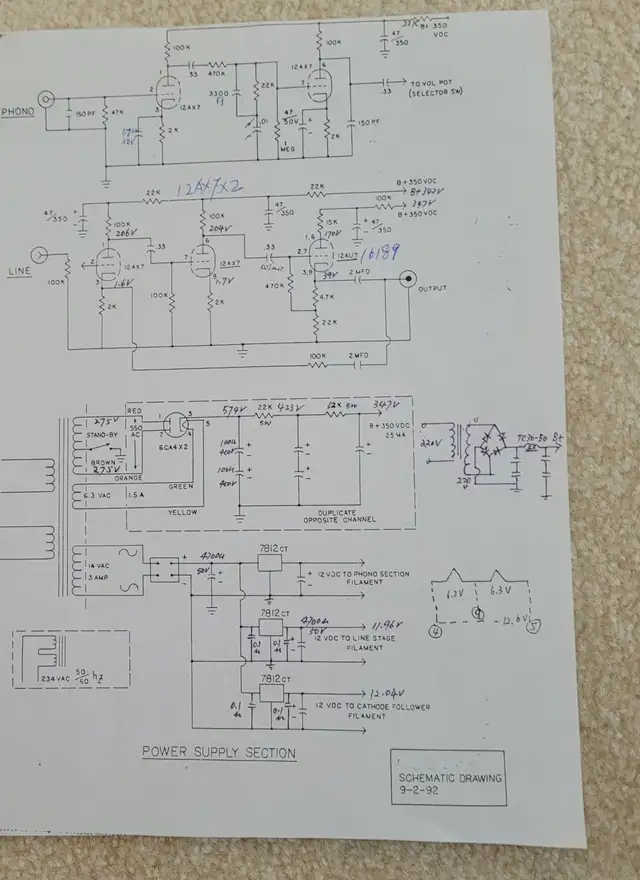 32K B+ 350
VDC
47
/350
100K
100K
.33
470K
12AX7
6
1
2
7
3
12AX7
22K
3300
Pf
.01
47
/50V
.33
TO VOL POT
(SELECTOR SW)
PHONO
150 PF
47K
2K
1 MEG
2K
150 PF
22K
12AX7X2
22K
B+350VDC
B+347V
100K
347V
B+350VDC
47
/350
100K
206V
100K
204V
47
/350
15K
170V
47
/350
.33
6
1,6
12AU7
/6189
.33
2
12AX7
7
12AX7
2,7
LINE
3
1.6V
8
1.7V
3,8
39V
2 MFD
OUTPUT
100K
2K
100K
2K
470K
4.7K
22K
100K
2 MFD
275V
RED
STAND-BY
550
AC
1
7
3
4
5
6CA4X2
BROWN
275V
ORANGE
GREEN
6.3 VAC
1.5 A
YELLOW
574V
22K
5W
423V
12K 5W
347V
B+350VDC
25 MA
100u
400V
100u
400V
DUPLICATE
OPPOSITE CHANNEL
220V
220
V
B+
14 VAC
3 AMP
4700u
50V
7812CT
12 VDC TO PHONO SECTION
FILAMENT
7812CT
4700u
50V
11.96V
0.1
u
0.1
u
12 VDC TO LINE STAGE
FILAMENT
7812CT
12.04V
0.1
u
0.1
u
12 VDC TO CATHODE FOLLOWER
FILAMENT
6.3V
6.3V
4
9
12.6V
5
234 VAC 50/60 hz
POWER SUPPLY SECTION
SCHEMATIC DRAWING
9-2-92